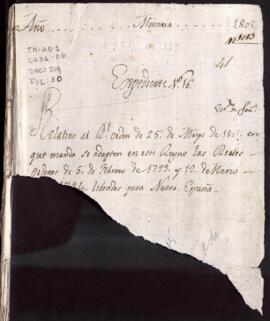 Año Mineria 1802
Nº 1013
TM-AD1
CAJA:06
DOC:219
FOL:30
41
Expediente Nº 16.
Relativo al Rl. orden de 25. de Mayo de 180
que manda se adapten en este Reyno las Reales
Ordenes de 5. de Febrero de 1793. y 12. de Marzo
libradas para Nueva España.